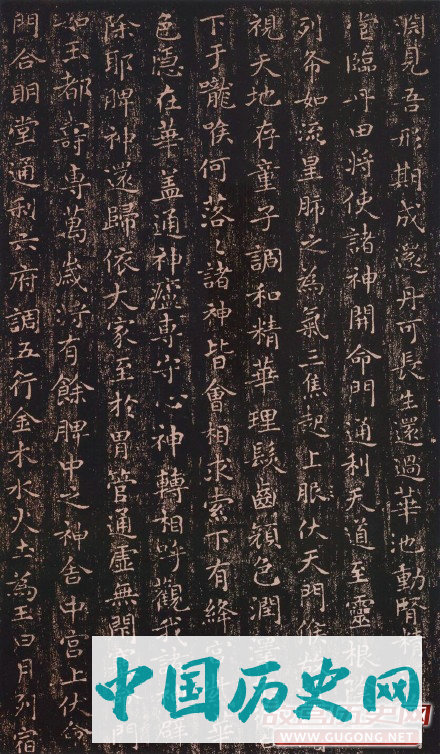 淵見吾形期成還丹可長生還過華池動腎精
臨丹田將使諸神開命門通利天道至靈根
列布如流星肺之為氣三焦起上服伏天門候
視天地存童子調和精華理髮齒顏色潤澤
下于嚨喉何落〻諸神皆會相求索下有絳
色隱在華蓋通神廬專守心神轉相呼觀我諸
除耶脾神還歸依大家至於胃管通虛無閉門
如玉都壽專萬歲將有餘脾中之神舍中宮上伏命
門合明堂通利六府調五行金木水火土為王日月列宿
中国历史网
GUGONG.NET